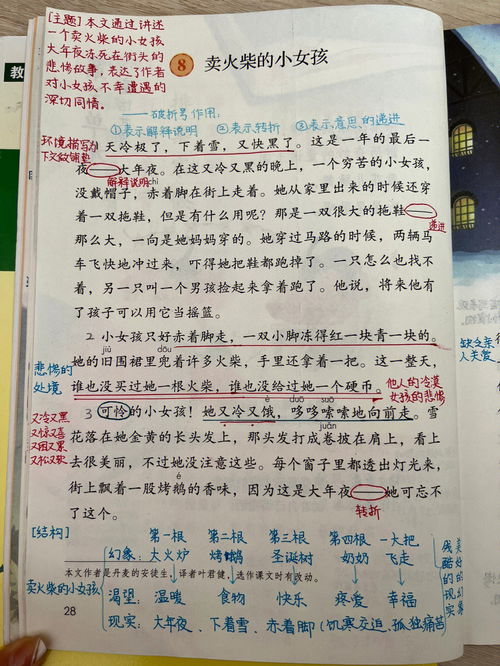 [主题] 本文通过讲述
一个卖火柴的小女孩
大年夜冻死在街头的
悲惨故事,表达了作者
对小女孩不幸遭遇的
深切同情。
8 卖火柴的小女孩
——破折号作用:
①表示解释说明 ②表示转折 ③表示意思的递进
环境描写为
下文做铺垫
天冷极了,下着雪,又快黑了。这是一年的最后一
夜——大年夜。在这又冷又黑的晚上,一个穷苦的小女孩,
解释说明
chì
没戴帽子,赤着脚在街上走着。她从家里出来的时候还穿
着一双拖鞋,但是有什么用呢?那是一双很大的拖鞋——
递进
那么大,一向是她妈妈穿的。她穿过马路的时候,两辆马
车飞快地冲过来,吓得她把鞋都跑掉了。一只怎么也找不
着,另一只叫一个男孩捡起来拿着跑了。他说,将来他有
了孩子可以用它当摇篮。
2 小女孩只好赤着脚走,一双小脚冻得红一块青一块的。
jiù dōu
她的旧围裙里兜着许多火柴,手里还拿着一把。这一整天,
悲惨的
处境
谁也没买过她一根火柴,谁也没给过她一个硬币。
他人的冷漠
女孩的悲惨
è duō suō
3 可怜的小女孩!她又冷又饿,哆哆嗦嗦地向前走。雪
又冷又黑
又惊又喜
又困又累
花落在她金黄的长头发上,那头发打成卷披在肩上,看上
juǎn
去很美丽,不过她没注意这些。每个窗子里都透出灯光来,
é
街上飘着一股烤鹅的香味,因为这是大年夜——她可忘不
转折
了这个。
[结构]
第一根 第二根 第三根 第四根 一大把
幻象:大火炉 烤鹅 圣诞树 奶奶 飞走
本文作者是丹麦的安徒生,译者叶君健,选作课文时有改动。
卖火柴的小女孩
渴望:温暖 食物 快乐 疼爱 幸福
现实:大年夜、下着雪、赤着脚(饥寒交迫、孤独痛苦)
美好的幻象
残酷的现实
28
缺少亲
人关爱
教